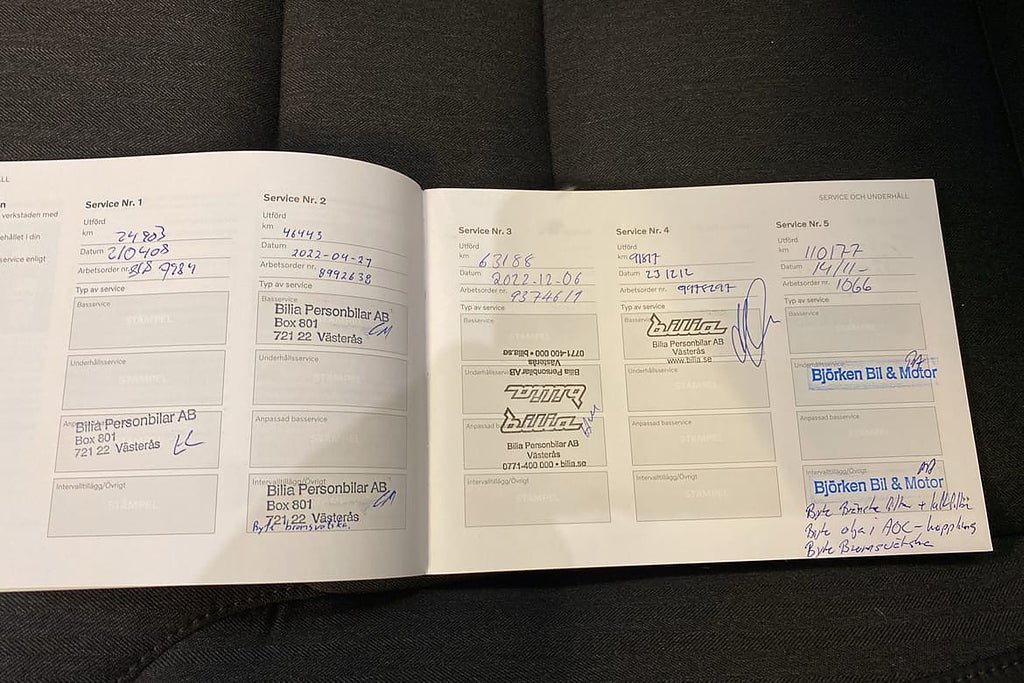 LL
n
verkstaden med
ehållet i din
service enligt
Service Nr. 1
Utförd
km 24803
Datum 210408
Arbetsorder nr. 9984
Typ av service
Basservice
STÄMPEL
Underhållsservice
STÄMPEL
Bilia Personbilar AB
Box 801
721 22 Västerås
Intervalltillägg/Övrigt
STÄMPEL
Service Nr. 2
Utförd
km 46443
Datum 2022-04-27
Arbetsorder nr. 8992638
Typ av service
Basservice
Bilia Personbilar AB
Box 801
721 22 Västerås
Underhållsservice
STÄMPEL
Anpassad basservice
STÄMPEL
Intervalltillägg/Övrigt
Bilia Personbilar AB
Box 801
721 22 Västerås
Byte bromsvätska.
SERVICE OCH UNDERHÅLL
Service Nr. 3
Utförd
km 63188
Datum 2022-12-06
Arbetsorder nr. 9374611
Typ av service
Basservice
0771-400 000 • bilia.se
Västerås
Bilia Personbilar AB
bilia
Underhållsservice
Anpassad b
bilia
Bilia Personbilar AB
Västerås
0771-400 000 • bilia.se
Intervalltillägg/Övrigt
STÄMPEL
Service Nr. 4
Utförd
km 91817
Datum 231212
Arbetsorder nr. 9978297
Typ av service
Basservice
bilia
Bilia Personbilar AB
Västerås
www.bilia.se
Underhållsservice
STÄMPEL
Anpassad basservice
STÄMPEL
Intervalltillägg/Övrigt
STÄMPEL
Service Nr. 5
Utförd
km 110177
Datum 14/11-
Arbetsorder nr. 1066
Typ av service
Basservice
STÄMPEL
Underhållsservice
Björken Bil & Motor
Anpassad basservice
STÄMPEL
Intervalltillägg/Övrigt
Björken Bil & Motor
Byte Bränsle filter + luftfilter
Byte olja i AOC-koppling
Byte Bromsvätska